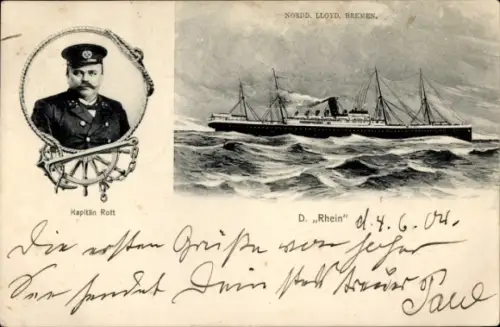 NORDD. LLOYD, BREMEN.
Kapitän Rott
D. „Rhein" d. 4. 6. 04.
Die ersten Grüße von hoher
See sendet Dein stets treuer Paul